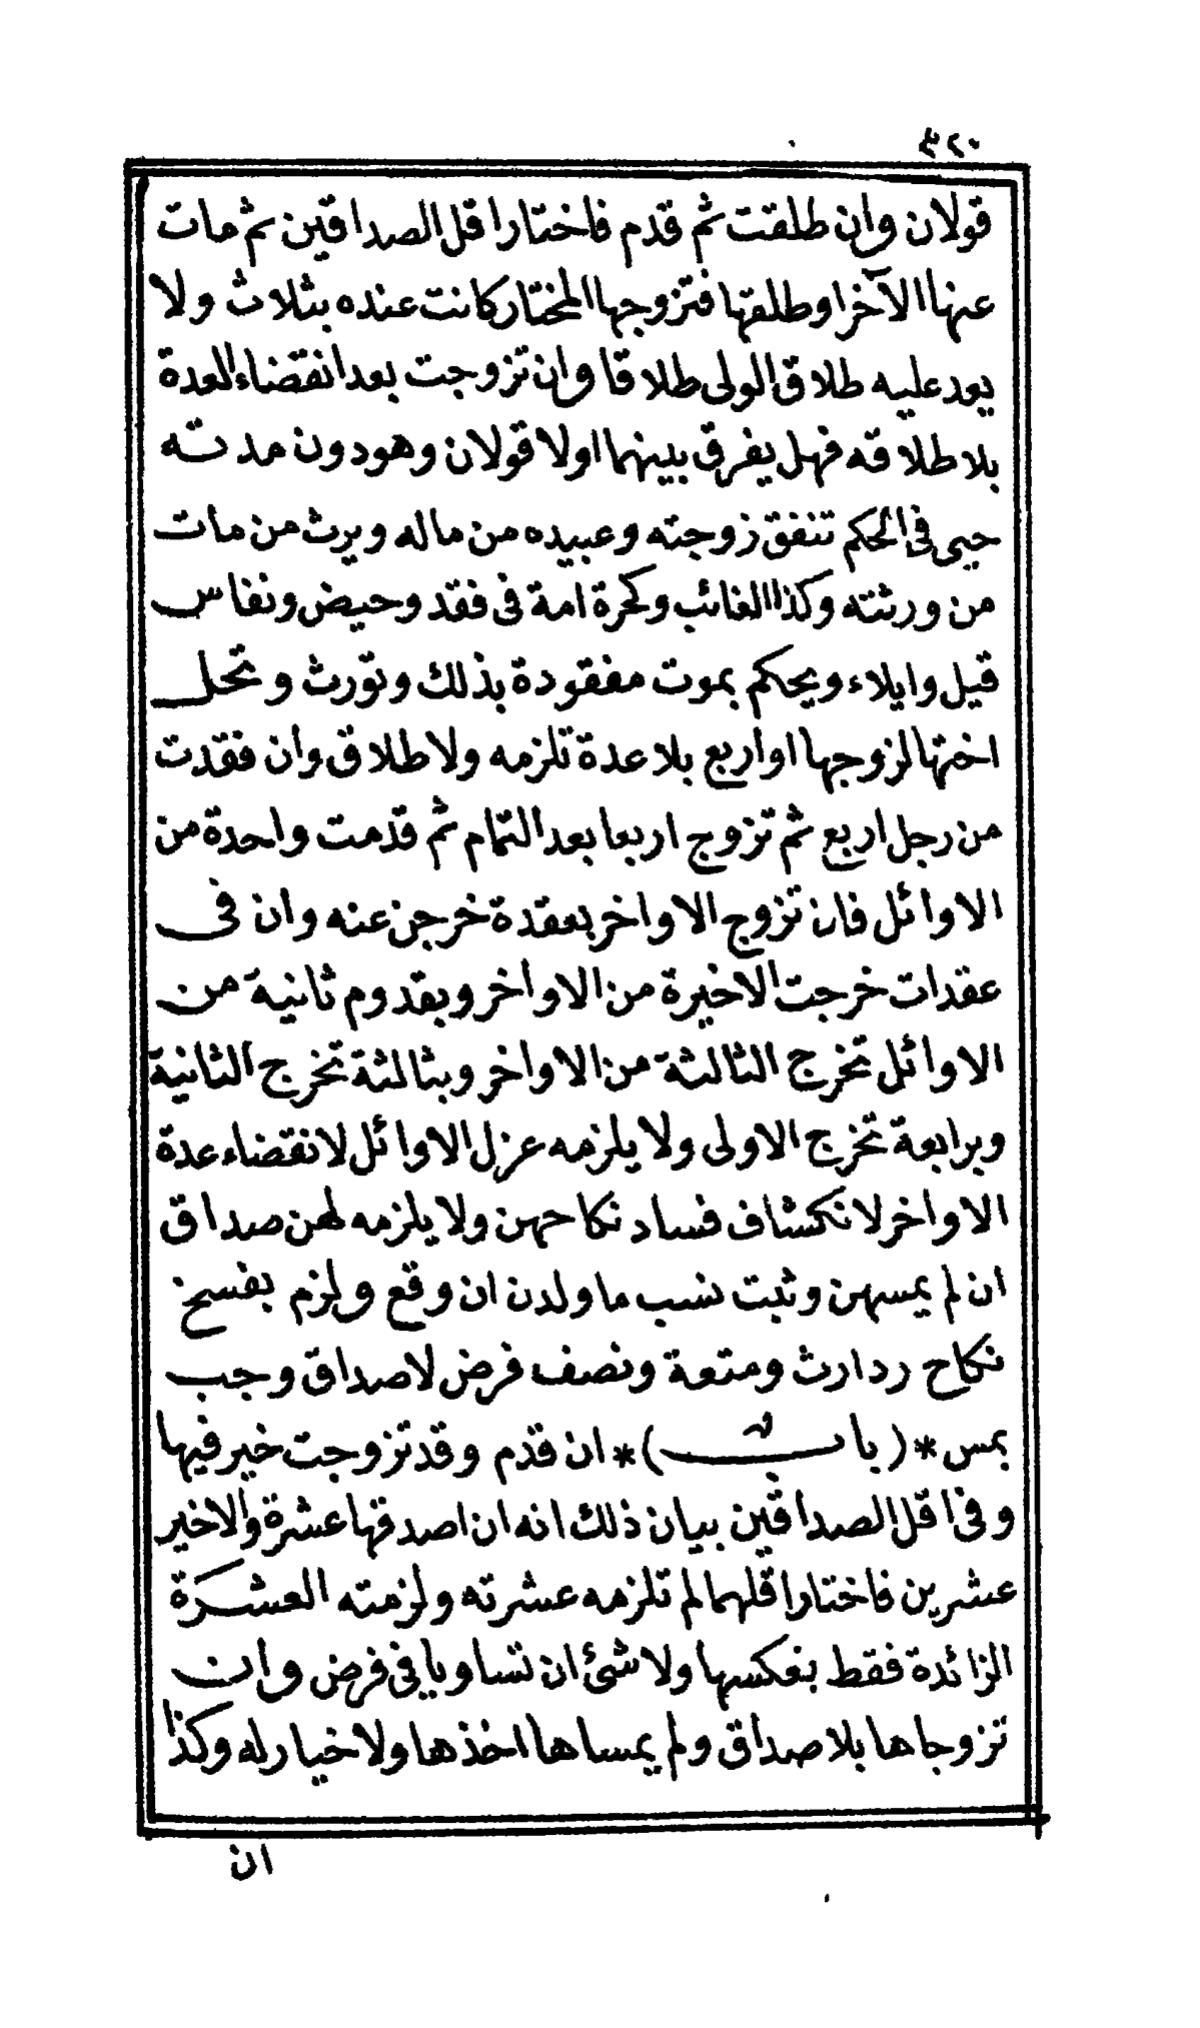 ٣٢٠
قولان وان طلقت ثم قدم فاختار اقل الصداقين ثم مات
عنها الآخر او طلقها فتزوجها المختار كانت عنده بثلاث ولا
يعد عليه طلاق الولى طلاقا وان تزوجت بعد انقضاء العدة
بلا طلاقه فهل يفرق بينهما او لا قولان وهو دون مدته
حيى فى الحكم تنفق زوجته وعبيده من ماله ويرث من مات
من ورثته وكذا الغائب وكحرة امة فى فقد وحيض ونفاس
قيل وايلاء ويحكم بموت مفقودة بذلك وتورث وتحل
اختها لزوجها او اربع بلا عدة تلزمه ولا طلاق وان فقدت
من رجل اربع ثم تزوج اربعا بعد التمام ثم قدمت واحدة من
الاوائل فان تزوج الاواخر بعقدة خرجن عنه وان فى
عقدات خرجت الاخيرة من الاواخر وبقدوم ثانية من
الاوائل تخرج الثالثة من الاواخر وبثالثة تخرج الثانية
وبرابعة تخرج الاولى ولا يلزمه عزل الاوائل لانقضاء عدة
الاواخر لانكشاف فساد نكاحهن ولا يلزمه لهن صداق
ان لم يمسهن وثبت نسب ما ولدن ان وقع ولزم بفسخ
نكاح رد ارث ومتعة ونصف فرض لا صداق وجب
بمس *(باب)* ان قدم وقد تزوجت خير فيها
وفى اقل الصداقين بيان ذلك انه ان اصدقها عشرة والاخير
عشرين فاختار اقلهما لم تلزمه عشرته ولزمته العشرة
الزائدة فقط بعكسها ولا شئ ان تساويا فى فرض وان
تزوجاها بلا صداق ولم يمساها اخذها ولا خيار له وكذا
ان